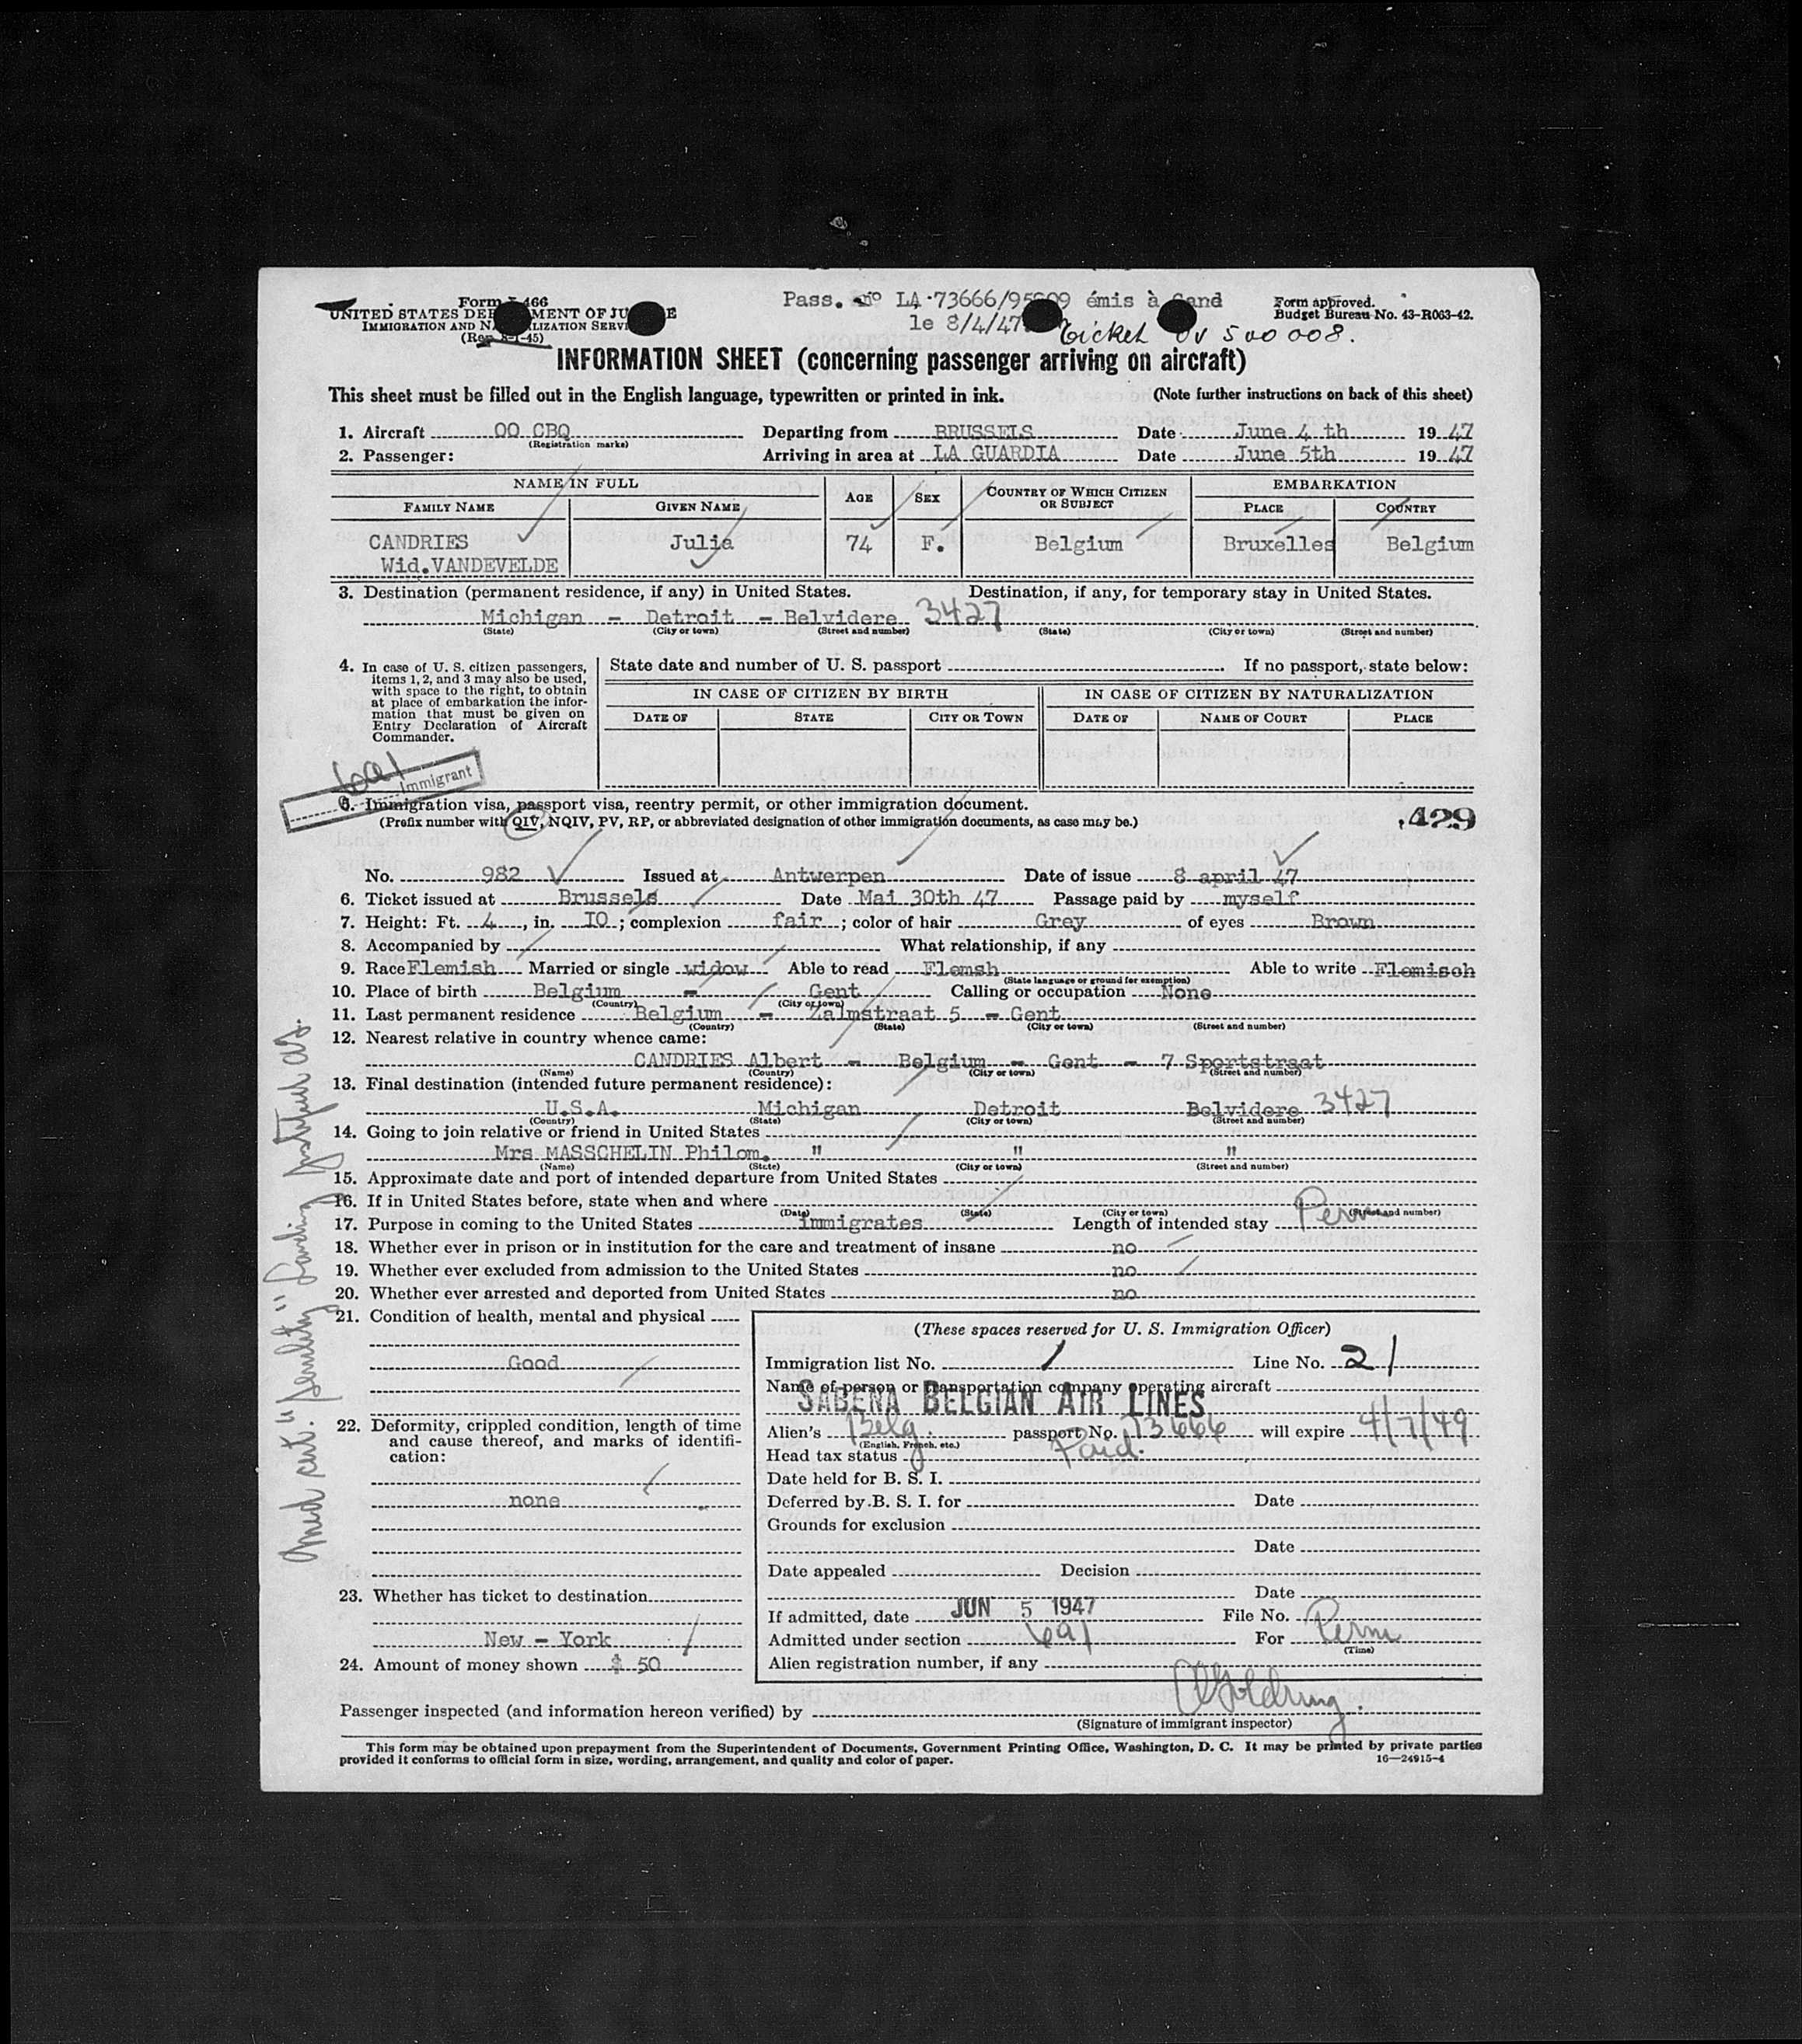 Form I-466
UNITED STATES DEPARTMENT OF JUSTICE
IMMIGRATION AND NATURALIZATION SERVICE
(Rep. 8-1-45)
Pass. no LA 73666/95 09 émis à Gand
le 8/4/47
ticket OV 500 008.
Form approved.
Budget Bureau No. 43-R063-42.
INFORMATION SHEET (concerning passenger arriving on aircraft)
This sheet must be filled out in the English language, typewritten or printed in ink. (Note further instructions on back of this sheet)
1. Aircraft OO CBQ Departing from BRUSSELS Date June 4 th 1947
(Registration marks)
2. Passenger: Arriving in area at LA GUARDIA Date June 5th 1947
NAME IN FULL AGE SEX COUNTRY OF WHICH CITIZEN OR SUBJECT EMBARKATION
FAMILY NAME GIVEN NAME PLACE COUNTRY
CANDRIES Julia 74 F. Belgium Bruxelles Belgium
Wid.VANDEVELDE
3. Destination (permanent residence, if any) in United States. Destination, if any, for temporary stay in United States.
Michigan - Detroit - Belvidere 3427
(State) (City or town) (Street and number) (State) (City or town) (Street and number)
4. In case of U. S. citizen passengers,
items 1, 2, and 3 may also be used,
with space to the right, to obtain
at place of embarkation the infor-
mation that must be given on
Entry Declaration of Aircraft
Commander.
State date and number of U. S. passport If no passport, state below:
IN CASE OF CITIZEN BY BIRTH IN CASE OF CITIZEN BY NATURALIZATION
DATE OF STATE CITY OR TOWN DATE OF NAME OF COURT PLACE
6a1
Immigrant
Immigration visa, passport visa, reentry permit, or other immigration document.
(Prefix number with QIV, NQIV, PV, RP, or abbreviated designation of other immigration documents, as case may be.)
429
No. 982 Issued at Antwerpen Date of issue 8 april 47
6. Ticket issued at Brussels Date Mai 30th 47 Passage paid by myself
7. Height: Ft. 4, in. IO; complexion fair; color of hair Grey of eyes Brown
8. Accompanied by What relationship, if any
9. Race Flemish Married or single widow Able to read Flemsh Able to write Flemisch
(State language or ground for exemption)
10. Place of birth Belgium - Gent Calling or occupation None
(Country) (City or town)
11. Last permanent residence Belgium - Zalmstraat 5 - Gent
(Country) (State) (City or town) (Street and number)
12. Nearest relative in country whence came:
CANDRIES Albert - Belgium - Gent - 7 Sportstraat
(Name) (Country) (City or town) (Street and number)
13. Final destination (intended future permanent residence):
U.S.A. Michigan Detroit Belvidere 3427
(Country) (State) (City or town) (Street and number)
14. Going to join relative or friend in United States
Mrs MASSCHELIN Philom. " " "
(Name) (State) (City or town) (Street and number)
15. Approximate date and port of intended departure from United States
16. If in United States before, state when and where
(Date) (State) (City or town) (Street and number)
17. Purpose in coming to the United States immigrates Length of intended stay Perm
18. Whether ever in prison or in institution for the care and treatment of insane no
19. Whether ever excluded from admission to the United States no
20. Whether ever arrested and deported from United States no
21. Condition of health, mental and physical
Good
22. Deformity, crippled condition, length of time
and cause thereof, and marks of identifi-
cation:
none
23. Whether has ticket to destination
New - York
24. Amount of money shown $ 50
(These spaces reserved for U. S. Immigration Officer)
Immigration list No. 1 Line No. 21
Name of person or transportation company operating aircraft
SABENA BELGIAN AIR LINES
Alien's Belg. passport No. 73666 will expire 4/7/49
(English, French, etc.)
Head tax status Paid.
Date held for B. S. I.
Deferred by B. S. I. for Date
Grounds for exclusion
Date
Date appealed Decision
Date
If admitted, date JUN 5 1947 File No.
Admitted under section 6a1 For Perm
(Time)
Alien registration number, if any
Passenger inspected (and information hereon verified) by Goldring
(Signature of immigrant inspector)
This form may be obtained upon prepayment from the Superintendent of Documents, Government Printing Office, Washington, D. C. It may be printed by private parties
provided it conforms to official form in size, wording, arrangement, and quality and color of paper. 16—24915-4
Med cert. "Senility" Landing